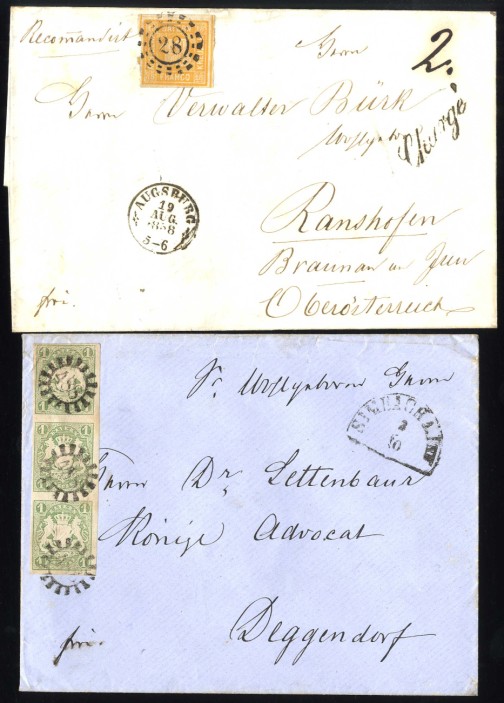 Recommandirt
28
FRANCO
Herrn
2.
Herrn Verwalter Bürk
Chargé
AUGSBURG
19
AUG.
1858
5-6
Ranshofen
Braunau am Inn
Oberösterreich
fri.
1 1
1 1
1 1
Sr. Wohlgeboren Herrn
SIMBACH A. INN
2
10
Herrn Dr. Lettenbaur
Königl Advocat
Deggendorf
fri.